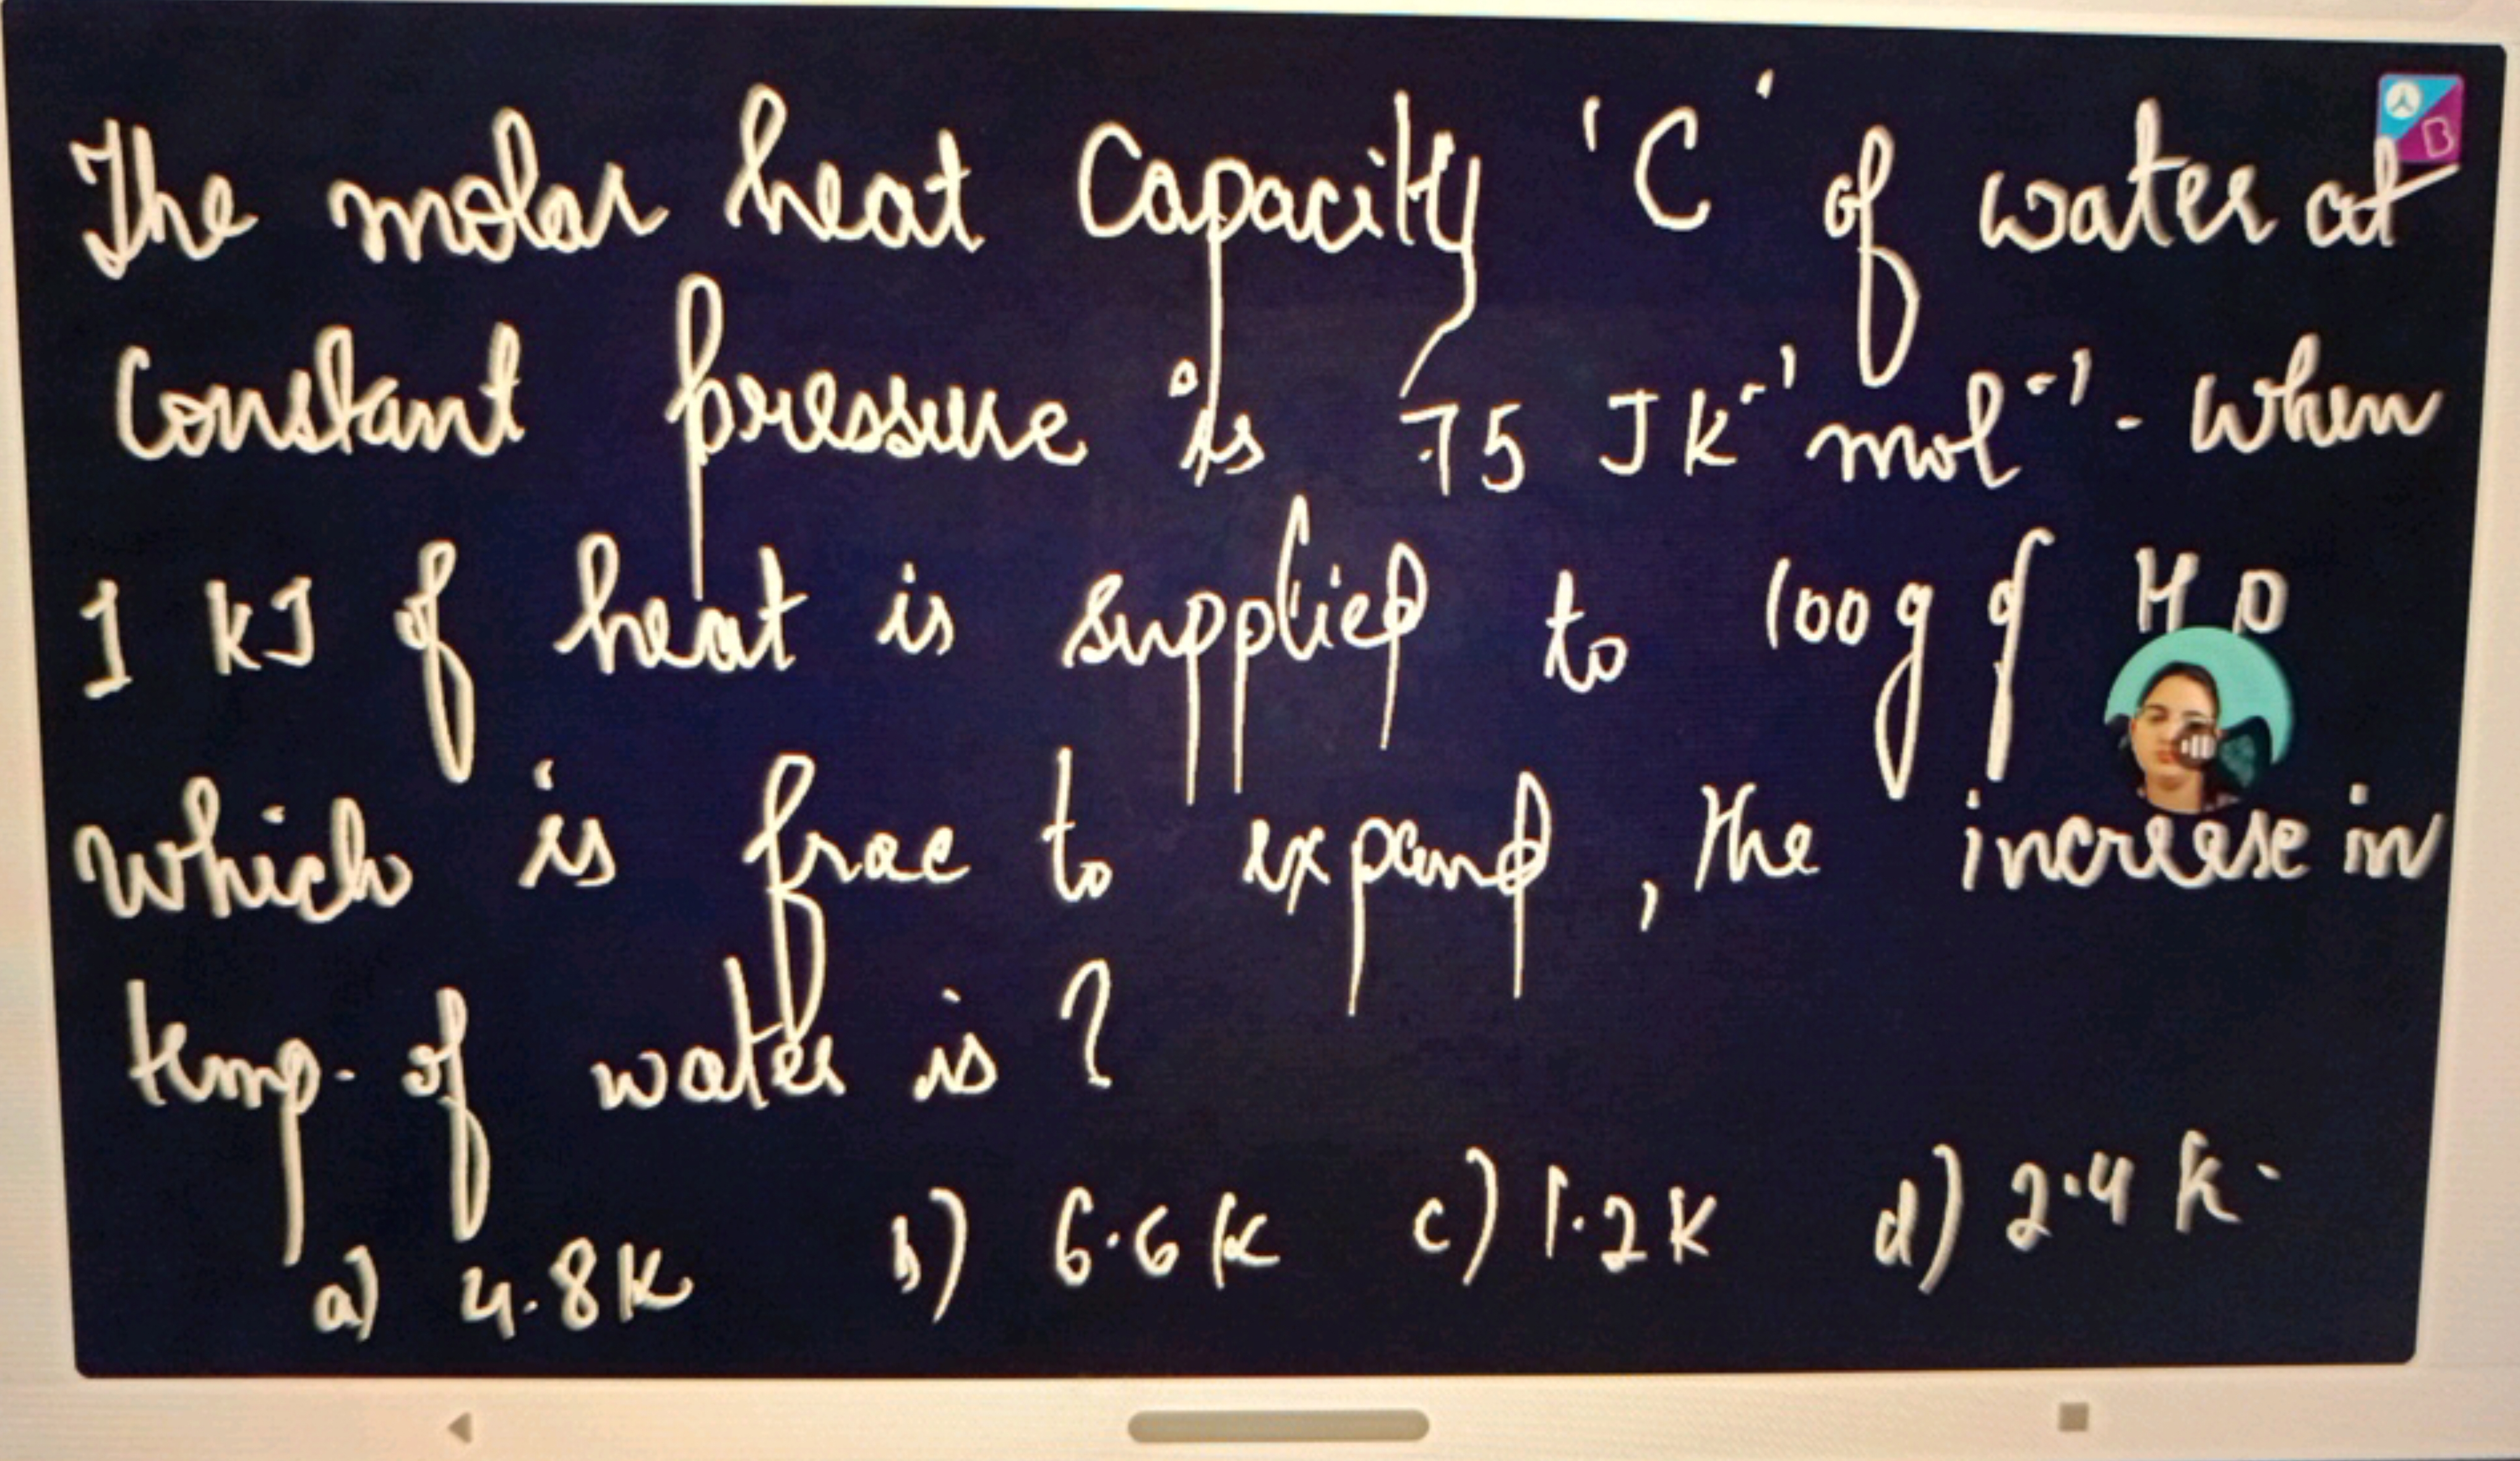 The molar heat capacity 'C' of water at
constant pressure is 75 JK⁻¹ mol⁻¹. when
1 kJ of heat is supplied to 100 g of H O
which is frae to expand, the increase in
temp. of water is ?
a) 4.8 K b) 6.6 K c) 1.2 K d) 2.4 K.